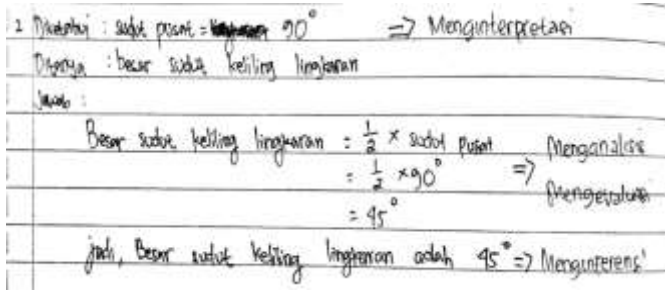 2 Diketahui : sudut pusat = 90° => Menginterpretasi
Ditanya : besar sudut keliling lingkaran
Jawab :
Besar sudut keliling lingkaran = 1/2 × sudut pusat Menganalisis
= 1/2 × 90° => Mengevaluasi
= 45°
jadi, Besar sudut keliling lingkaran adalah 45° => Menginferensi